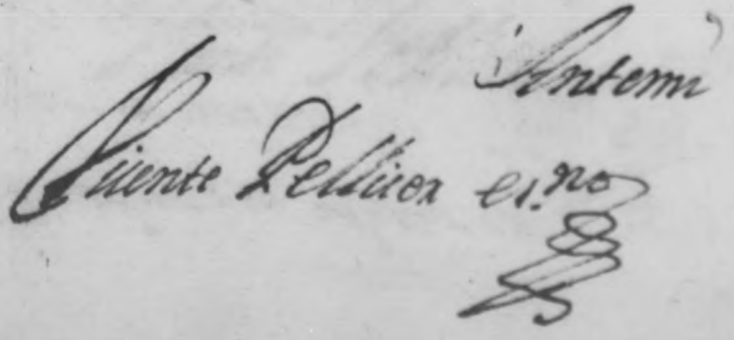 Antemi
Vicente Pellicer es.no